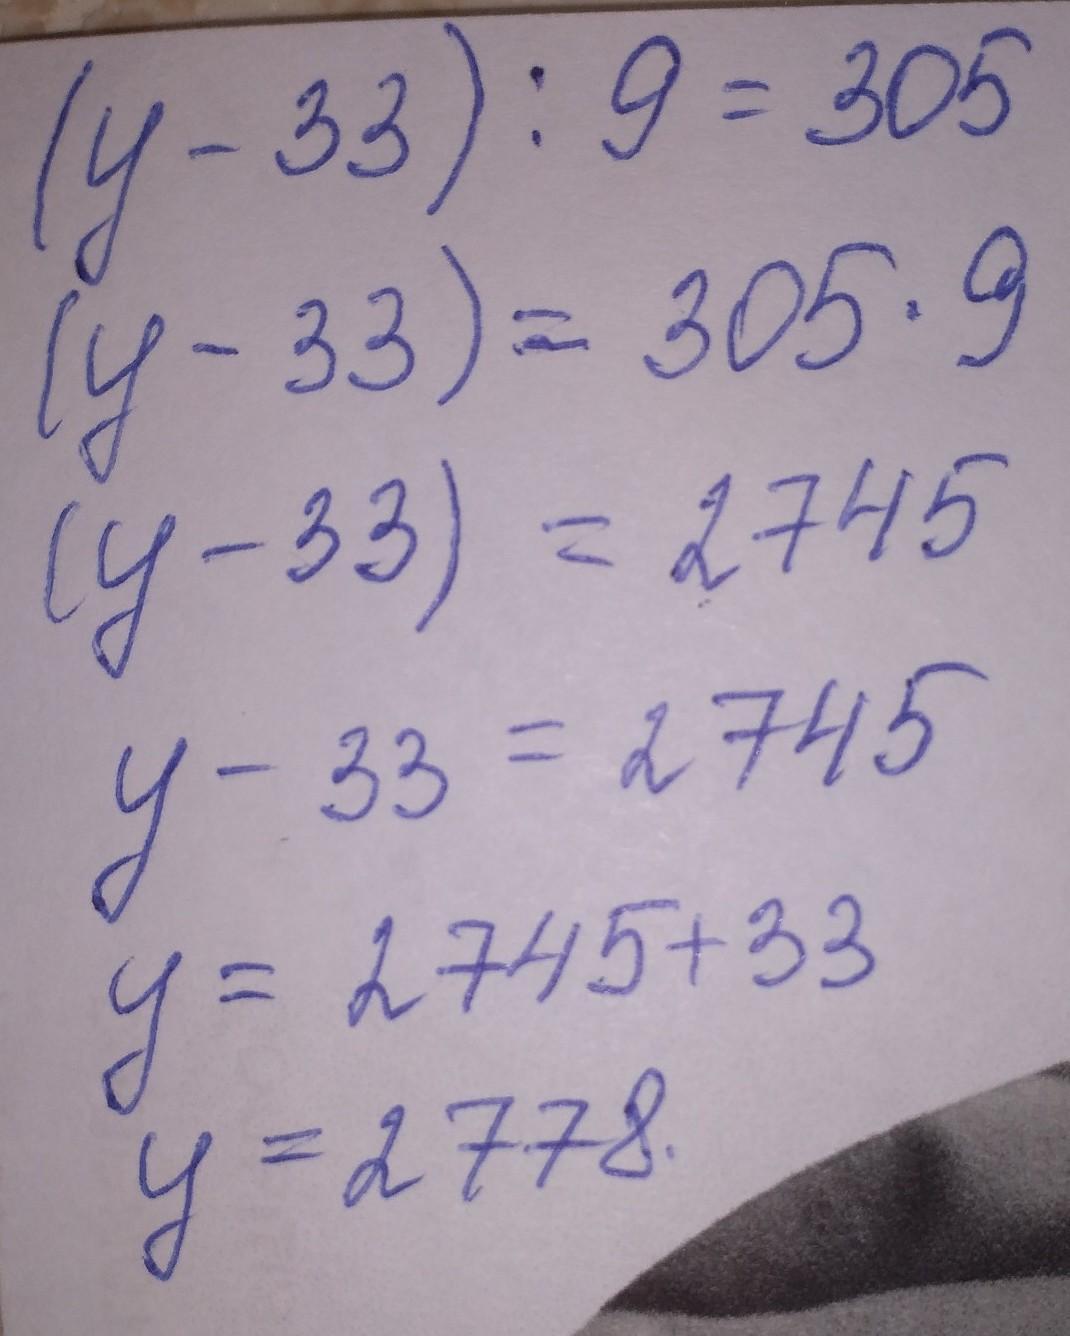 (y - 33) : 9 = 305
(y - 33) = 305 · 9
(y - 33) = 2745
y - 33 = 2745
y = 2745 + 33
y = 2778.